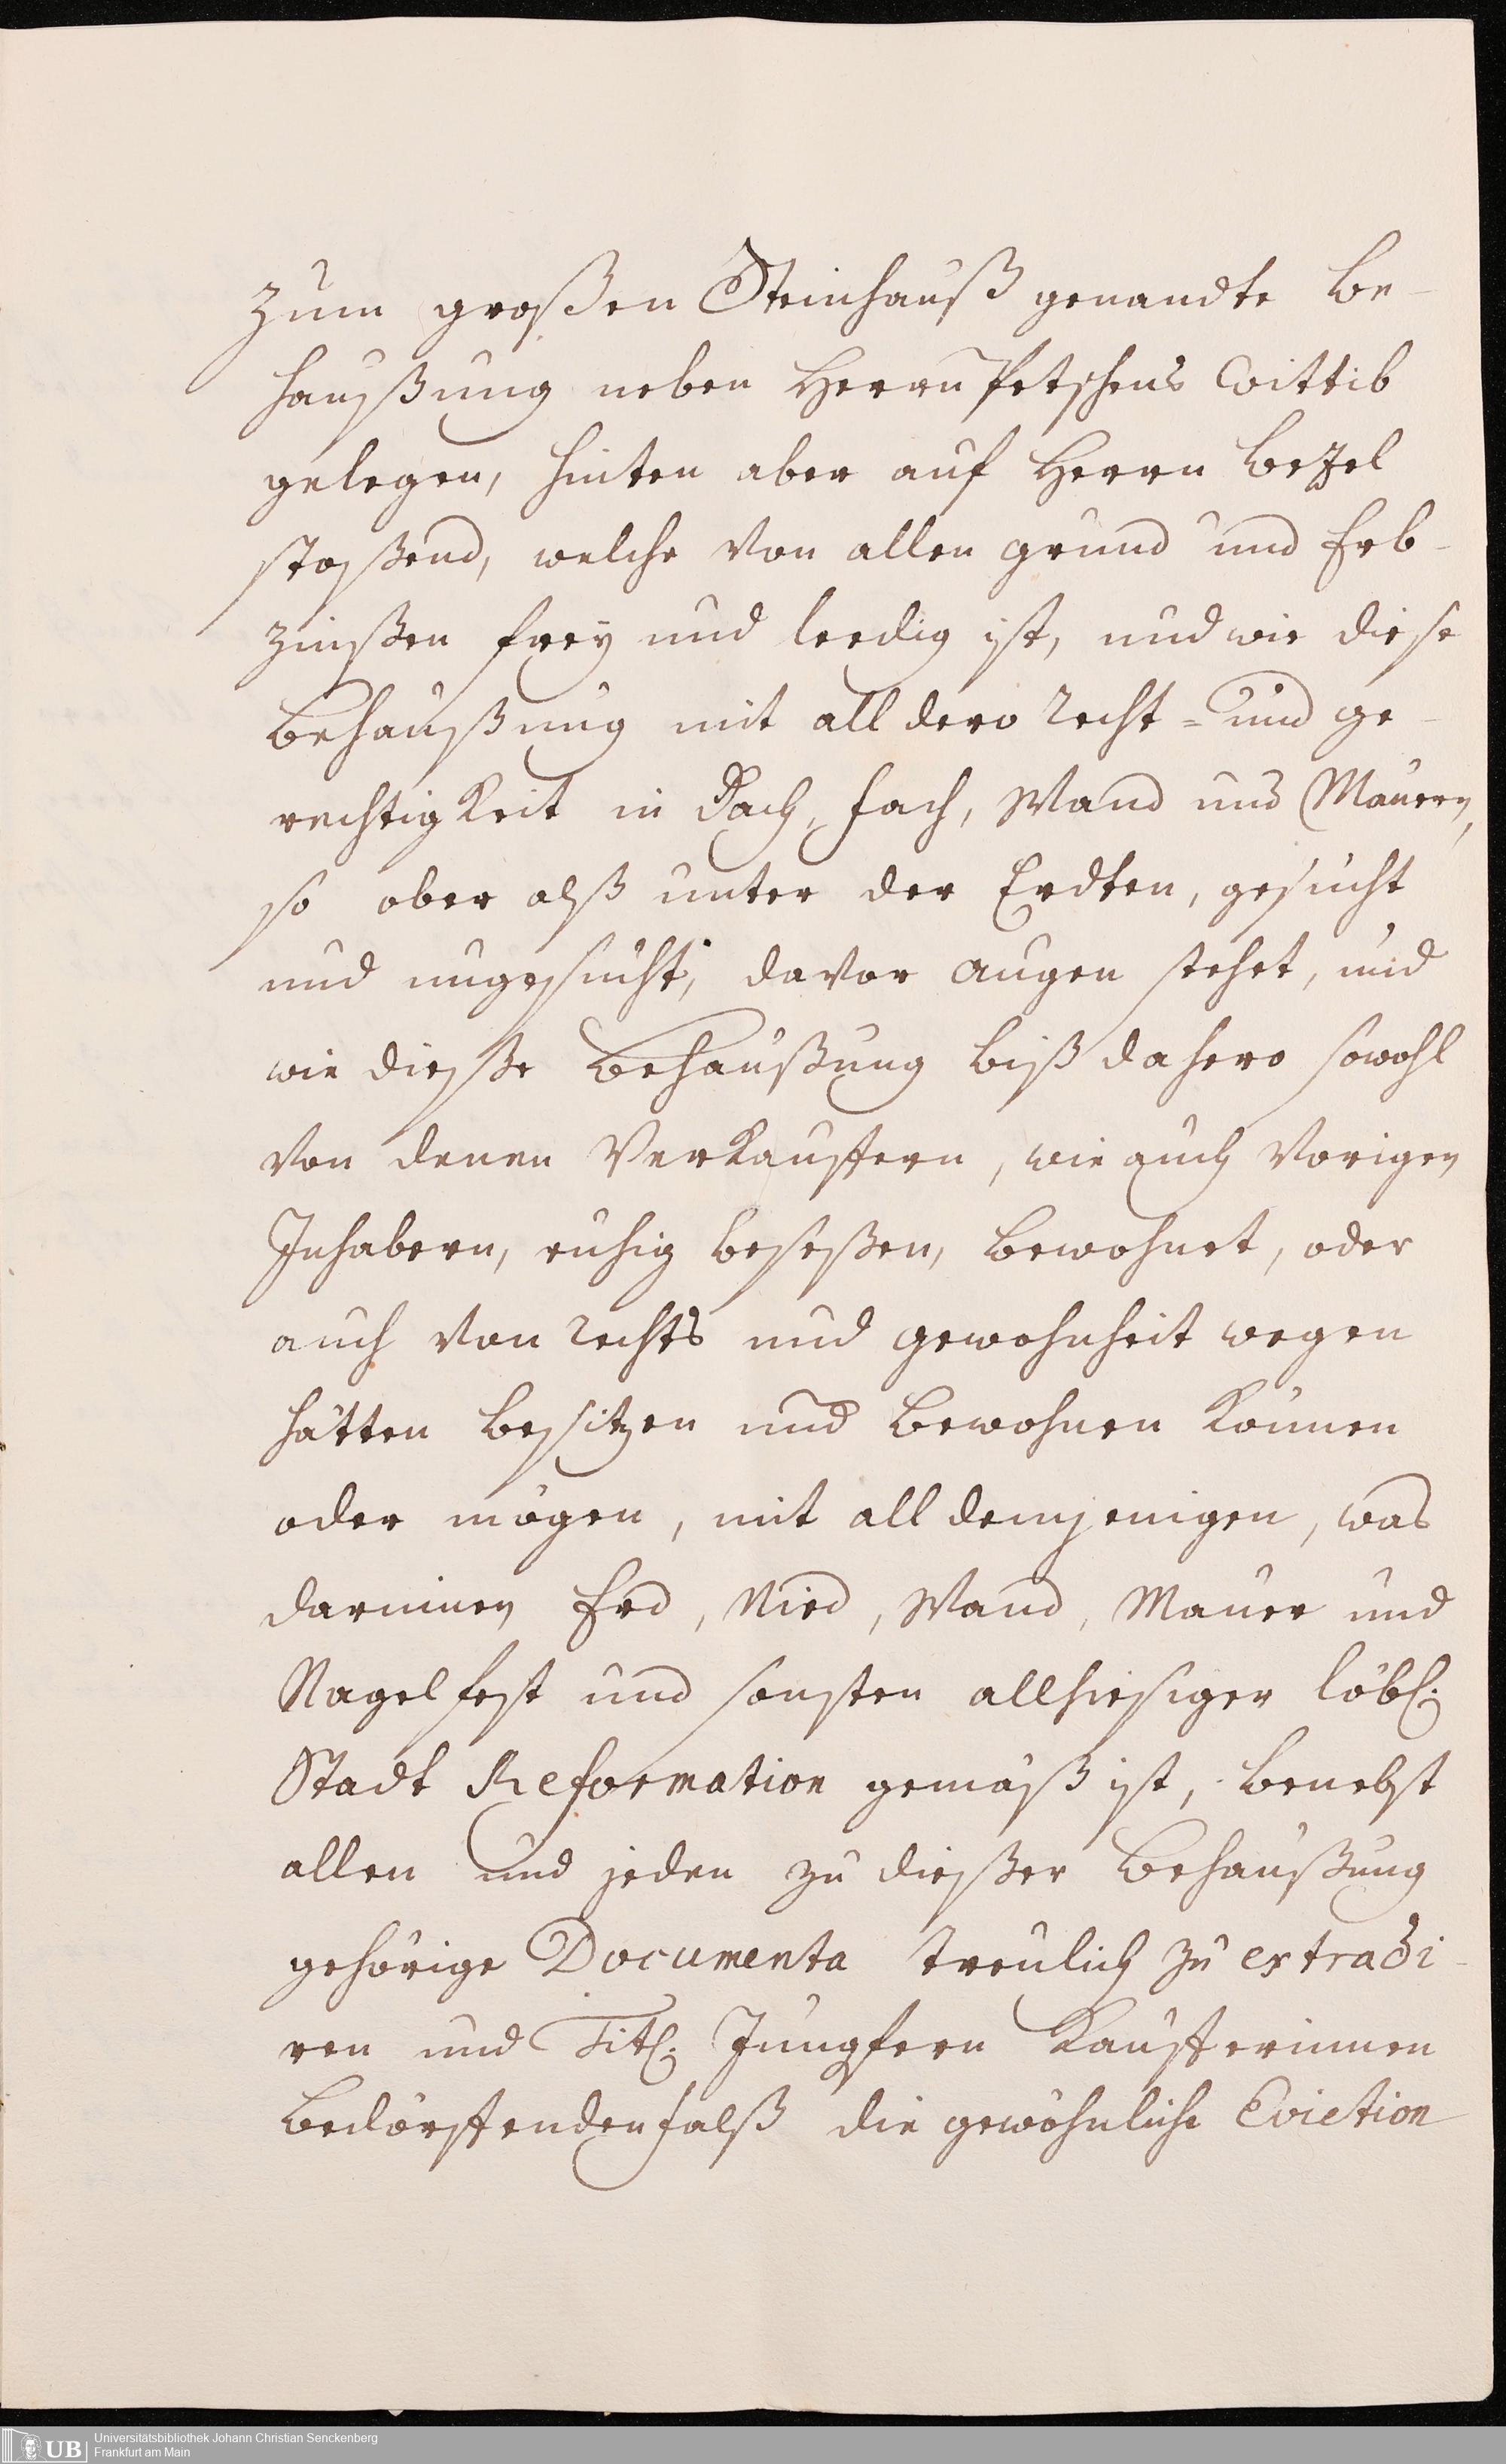 zum großen Steinhauß genandte Be-
haußung neben Herrn Petschens Wittib
gelegen, hinten aber auf Herrn Bezel
stoßend, welche von allen grund und Erb-
zinßen frey und leedig ist, und wie diese
Behaußung mit all dero recht= und ge-
rechtigkeit in Dach, fach, Wand und Mauern,
so ober alß unter der Erdten, gesucht
und ungesucht, da vor augen stehet, und
wie dieße Behaußung biß dahero sowohl
von denen Verkauffern, wie auch vorigen
Inhabern, ruhig beseßen, bewohnet, oder
auch von rechts und gewohnheit wegen
hätten besitzen und bewohnen können
oder mögen, mit all demjenigen, was
darinnen Erd, Nied, Wand, Mauer und
Nagelfest und sonsten allhiesiger löbl.
Stadt Reformation gemäß ist, benebst
allen und jeden zu dießer Behaußung
gehörige Documenta treulich zu extradi-
ren und Titl. Jungfern Kaufferinnen
bedörffendenfalß die gewöhnliche Eviction
UB
Universitätsbibliothek Johann Christian Senckenberg
Frankfurt am Main